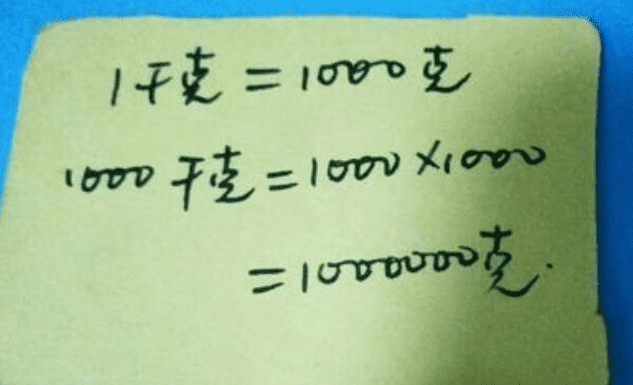 1千克=1000克
1000千克=1000×1000
=1000000克.